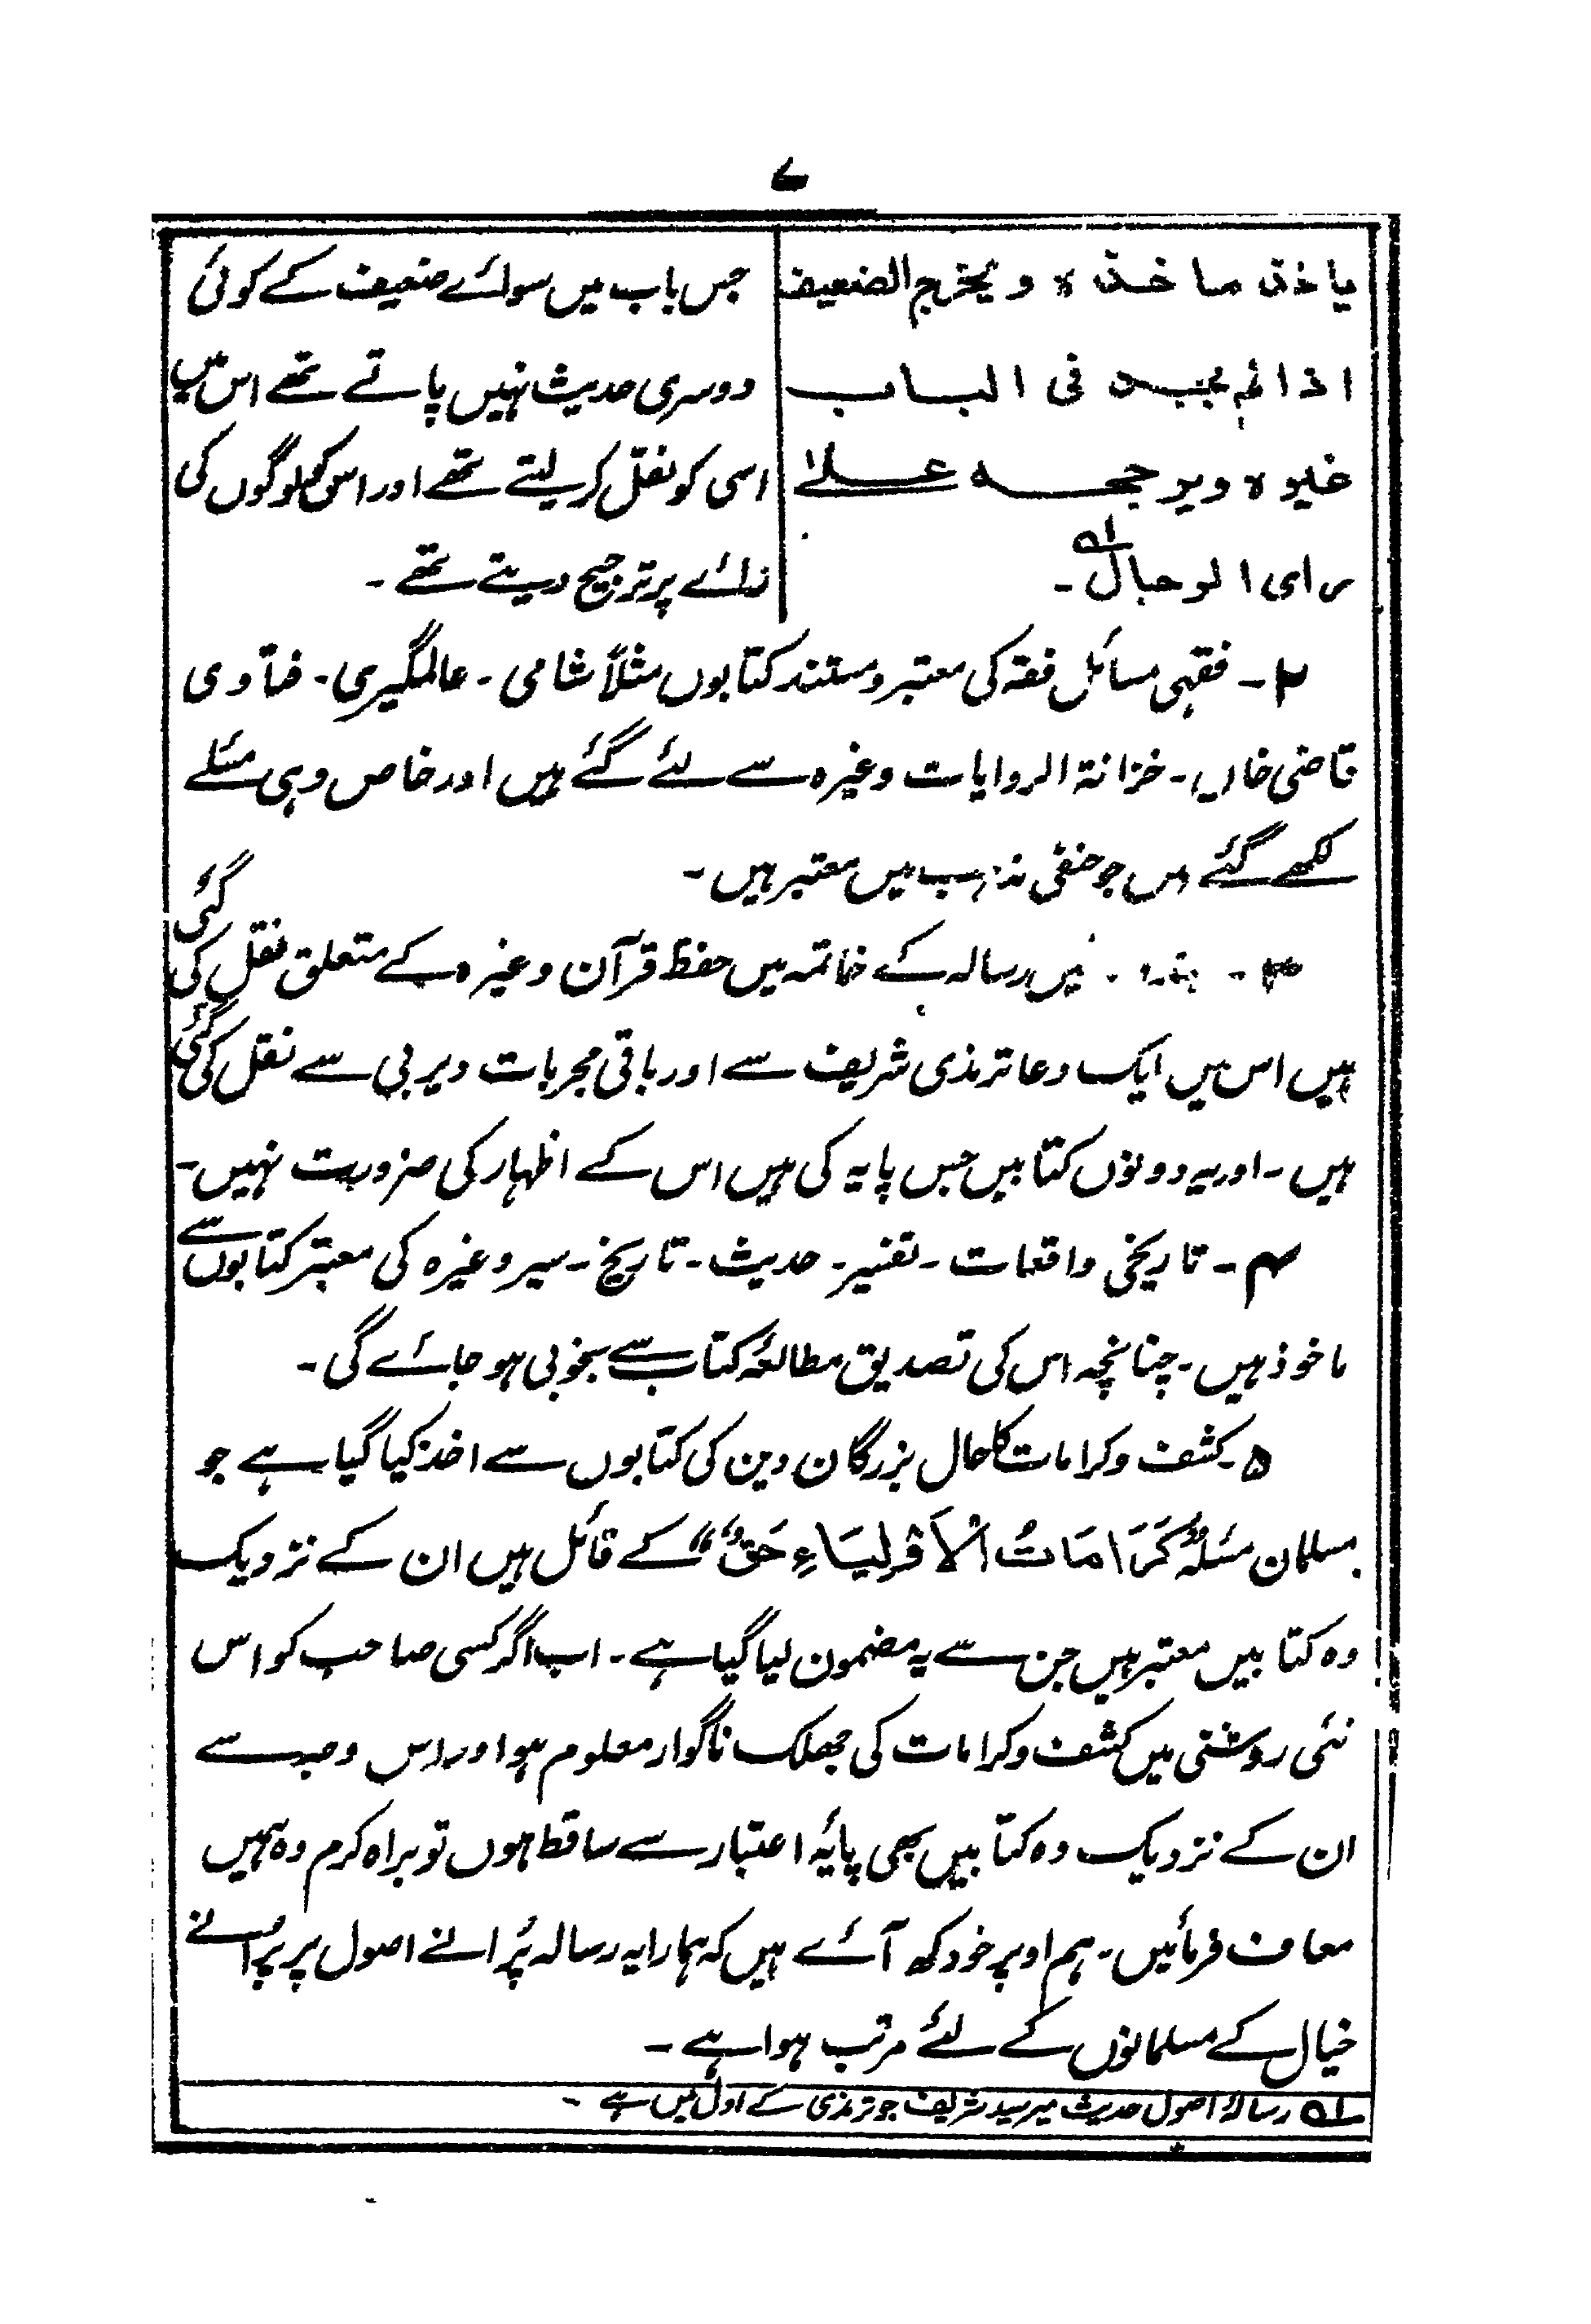 ۷
یاخذ ماخذہ و یخرج الضعیف
اذا لم یجد فی الباب
غیرہ ویرجحہ علے
رای الرجال۔ ؎۱
جس باب میں سوائے ضعیف کے کوئی
دوسری حدیث نہیں پاتے تھے اس میں
اسی کو نقل کر لیتے تھے اور اس کو لوگوں کی
رائے پر ترجیح دیتے تھے۔
۲۔ فقہی مسائل فقہ کی معتبر و مستند کتابوں مثلاً شامی۔ عالمگیری۔ فتاوی
قاضی خاں۔ خزانۃ الروایات وغیرہ سے لئے گئے ہیں اور خاص وہی مسئلے
لکھے گئے ہیں جو حنفی مذہب میں معتبر ہیں۔
۳۔ میں رسالہ کے خاتمہ میں حفظ قرآن وغیرہ کے متعلق نقل کی گئی
ہیں اس میں ایک دعا ترمذی شریف سے اور باقی مجربات دیربی سے نقل کی گئی
ہیں۔ اور یہ دونوں کتابیں جس پایہ کی ہیں اس کے اظہار کی ضرورت نہیں۔
۴۔ تاریخی واقعات۔ تفسیر۔ حدیث۔ تاریخ۔ سیر وغیرہ کی معتبر کتابوں سے
ماخوذ ہیں۔ چنانچہ اس کی تصدیق مطالعۂ کتاب سے بخوبی ہو جائے گی۔
۵۔ کشف و کرامات کا حال بزرگان دین کی کتابوں سے اخذ کیا گیا ہے جو
مسلمان مسئلہ "کَرَامَاتُ الْاَوْلِیَاءِ حَقٌّ" کے قائل ہیں ان کے نزدیک
وہ کتابیں معتبر ہیں جن سے یہ مضمون لیا گیا ہے۔ اب اگر کسی صاحب کو اس
نئی روشنی میں کشف و کرامات کی جھلک ناگوار معلوم ہو اور اس وجہ سے
ان کے نزدیک وہ کتابیں بھی پایۂ اعتبار سے ساقط ہوں تو براہ کرم وہ ہمیں
معاف فرمائیں۔ ہم اوپر خود کہہ آئے ہیں کہ ہمارا یہ رسالہ پُرانے اصول پر پُرانے
خیال کے مسلمانوں کے لئے مرتب ہوا ہے۔
؎۱ رسالۂ اصول حدیث میر سید شریف جو ترمذی کے اول میں ہے۔